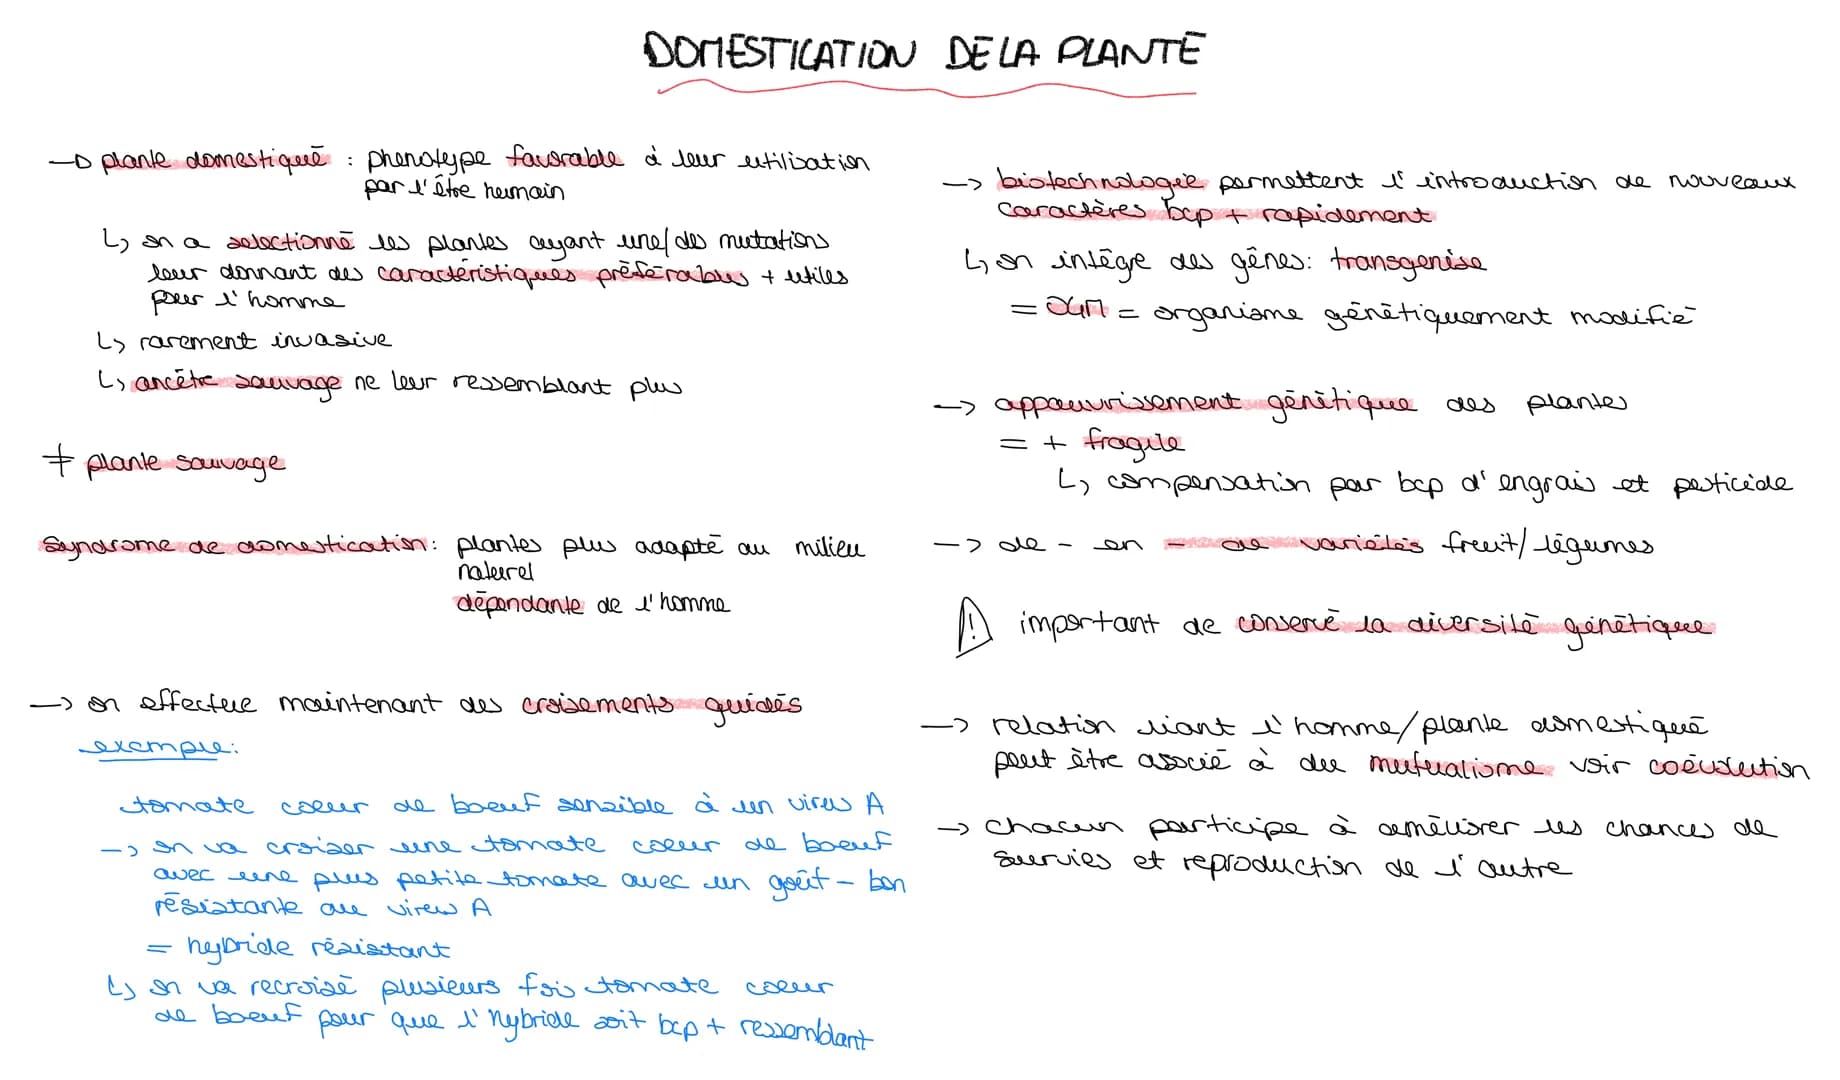 DOMESTICATION DE LA PLANTE
→ plante domestiqué : phenotype favorable à leur utilisation
par l'être humain
↳ on a selectionné les plantes ayant une/des mutations
leur donnant des caractéristiques préférables + utiles
pour l'homme
↳ rarement invasive
↳ ancêtre sauvage ne leur ressemblant plus
≠ plante sauvage
Syndrome de domestication : plantes plus adapté au milieu
naturel
dépendante de l'homme
→ on effectue maintenant des croisements guidés
exemple :
tomate coeur de boeuf sensible à un virus A
→ on va croiser une tomate coeur de boeuf
avec une plus petite tomate avec un goût - bon
résistante au virus A
= hybride résistant
↳ on va recroisé plusieurs fois tomate coeur
de boeuf pour que l'hybride soit bcp + ressemblant
→ biotechnologie permettent l'introduction de nouveaux
caractères bcp + rapidement
↳ on intêgre des gênes : transgenise
= OGM = organisme génétiquement modifié
→ appauvrissement génétique des plantes
= + fragile
↳ compensation par bcp d'engrais et pesticide
→ de - en - de variétés fruit/légumes
⚠ important de conservé la diversité génétique
→ relation liant l'homme/plante domestiqué
peut être associé à du mutualisme voir coévolution
→ chacun participe à améliorer les chances de
survies et reproduction de l'autre